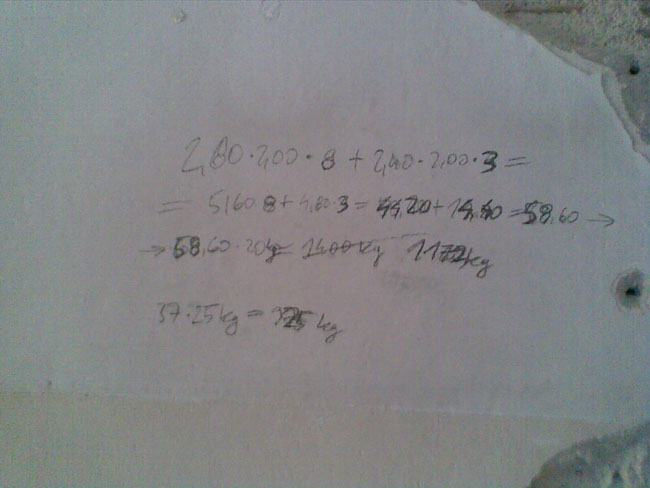 2,80·2,00·8 + 2,40·2,00·3 =
= 5,60·8 + 4,80·3 = 44,20 + 14,40 = 58,60 →
→ 58,60·20kg = 1400 kg 1.172kg
37·25kg = 325 kg